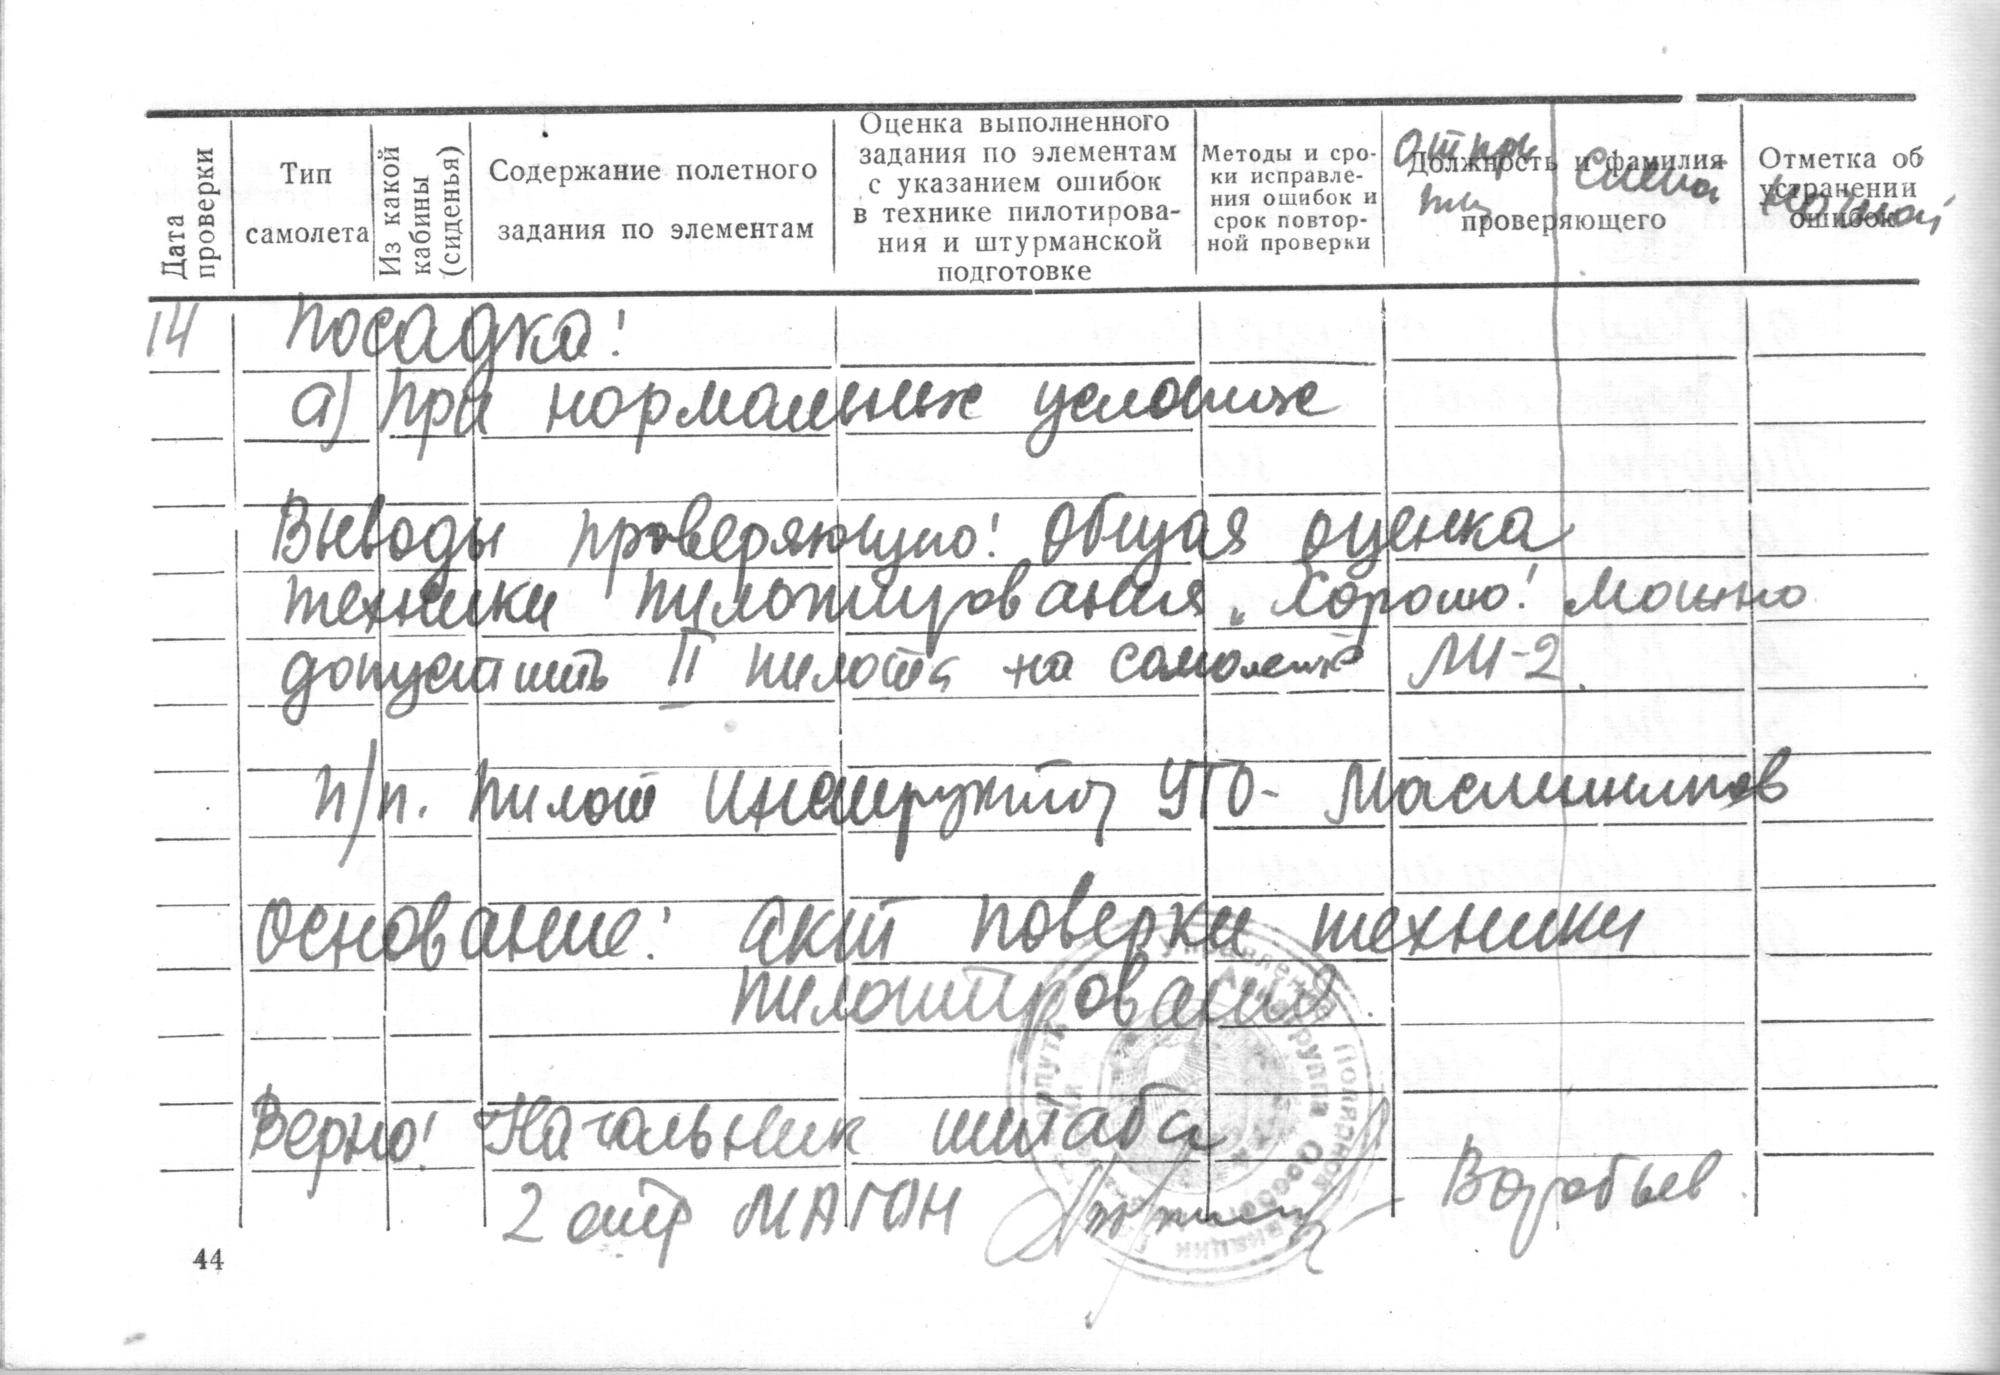 Дата проверки
Тип самолета
Из какой кабины (сиденья)
Содержание полетного задания по элементам
Оценка выполненного задания по элементам с указанием ошибок в технике пилотирова-ния и штурманской подготовке
Методы и сро-ки исправле-ния ошибок и срок повтор-ной проверки
Должность и фамилия проверяющего
Отметка об устранении ошибок
Слепа
14 Посадка:
а) При нормальных условиях
Выводы проверяющего: Общая оценка
техники пилотирования „Хорошо! Можно
допустить II пилота на самолете ЛИ-2.
п/п. Пилот Инструктор УТО-
Основание: акт поверки техники
пилотирования.
Верно: Начальник штаба
2 АГОН Воробьев
Управление Полярной Авиации
Авиагруппа Особого
44